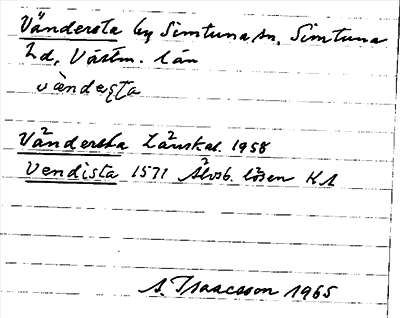 Vändersta by Simtuna sn. Simtuna
hd, Västm. län
vàndeṣta
Vändersta Länskal. 1958
Vendista 1571 Älvsb. lösen KA
A. Isaacsson 1965